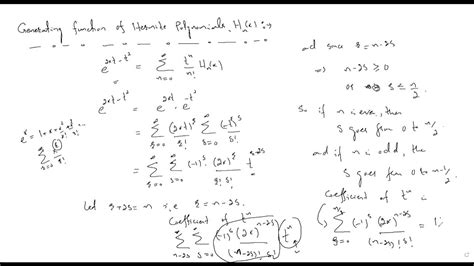 Generating function of Hermite Polynomials, Hₙ(x) :→
e^{2xt-t²} = Σ_{n=0}^{∞} tⁿ/n! Hₙ(x)
e^{2xt-t²} = e^{2xt} · e^{-t²}
= Σ_{r=0}^{∞} (2xt)^r/r! Σ_{s=0}^{∞} (-t²)^s/s!
= Σ_{r=0}^{∞} Σ_{s=0}^{∞} (-1)^s (2x)^r/(r! s!) t^{r+2s}
Let r+2s = n i.e. r = n-2s
Coefficient of tⁿ
(-1)^s (2x)^{n-2s}/((n-2s)! s!) tⁿ
and since r = n-2s
⇒ n-2s ≥ 0
or s ≤ n/2.
So if n is even, then
s goes from 0 to n/2
and if n is odd, the
s goes from 0 to n-1/2
Coefficient of tⁿ is
(-1)^s (2x)^{n-2s}/((n-2s)! s!) =